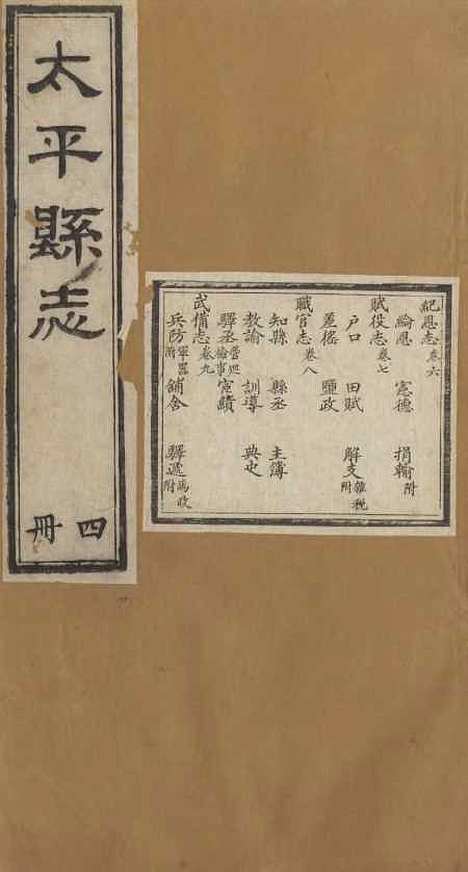 太平縣志
四冊
紀恩志卷六
綸恩 憲德 捐輸附
賦役志卷七
戶口 田賦 解支雜稅附
差徭 鹽政
職官志卷八
知縣 縣丞 主簿
教諭 訓導 典史
驛丞 宦績
武備志卷九
兵防軍器附 鋪舍 驛遞馬政附